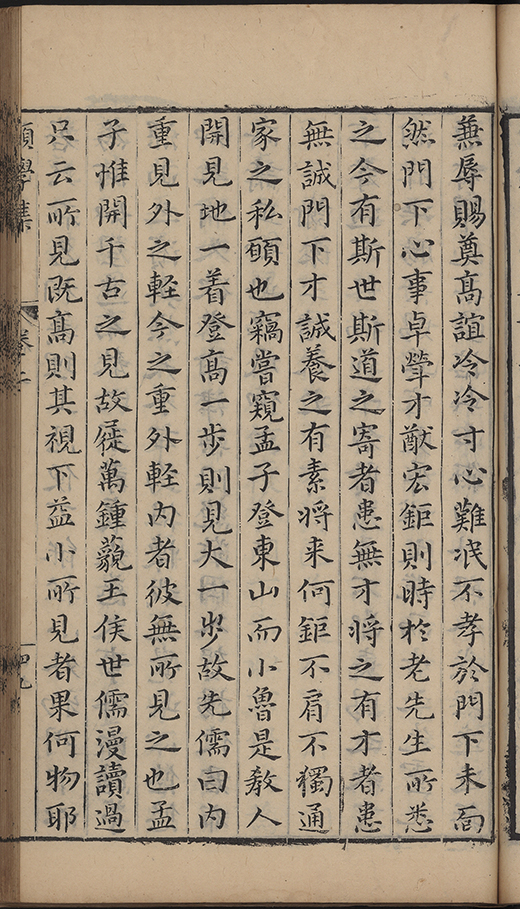 蕪辱賜奠髙誼冷冷寸心難泯不孝於門下未面
然門下心事卓犖才猷宏鉅則時於老先生所悉
之今有斯世斯道之寄者患無才將之有才者患
無誠門下才誠養之有素將来何鉅不肩不獨通
家之私頋也竊嘗窺孟子登東山而小魯是教人
開見地一着登髙一步則見大一步故先儒曰内
重見外之輕今之重外輕内者彼無所見之也孟
子惟開千古之見故屣萬鍾藐王侯世儒漫讀過
只云所見既髙則其視下益小所見者果何物耶
願學集
卷之二
四九